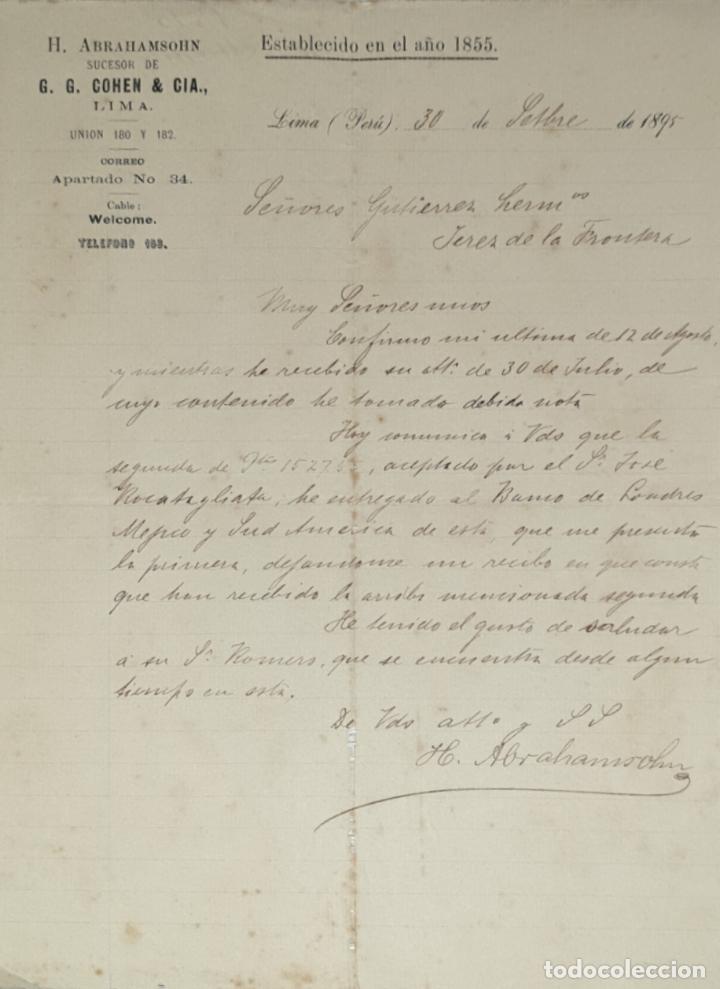 H. ABRAHAMSOHN
SUCESOR DE
G. G. COHEN & CIA.,
LIMA.
UNION 180 Y 182.
CORREO
Apartado No 34.
Cable:
Welcome.
TELEFONO 163.
Establecido en el año 1855.
Lima (Perú), 30 de Setbre de 1895
Señores Gutierrez herm os
Jerez de la Frontera
Muy Señores mios
Confirmo mi ultima de 12 de Agosto,
y mientras he recibido su att. de 30 de Julio, de
cuyo contenido he tomado debida nota
Hoy comunico á Vds que la
segunda de 1527, aceptado por el Sr. José
Rocatagliata, he entregado al Banco de Londres
Mejico y Sud America de esta, que me presentó
la primera, dejandome un recibo en que consta
que han recibido la arriba mencionada segunda
He tenido el gusto de saludar
á su Sr. Romero, que se encuentra desde algun
tiempo en esta.
De Vds atto y S S
H. Abrahamsohn
todocoleccion